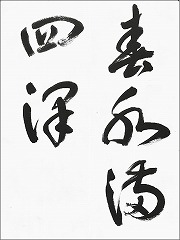 春水満
四澤